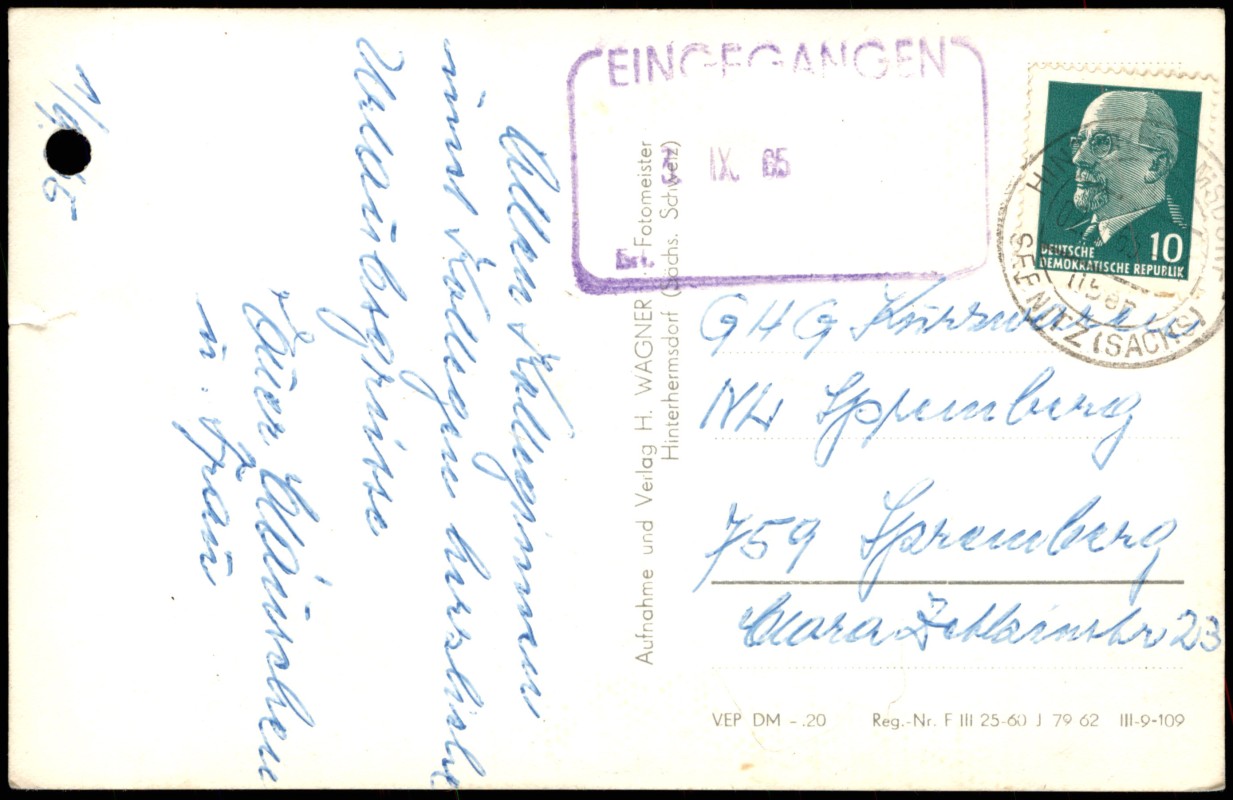 1/9. 65
Allen Kolleginnen
und Kollegen herzliche
Urlaubsgrüsse
Euer
u. Frau
Aufnahme und Verlag H. WAGNER · Fotomeister
Hinterhermsdorf (Sächs. Schweiz)
EINGEGANGEN
IX. 65
Erl.
DEUTSCHE
DEMOKRATISCHE REPUBLIK
10
SEBNITZ (SACHS)
GHG Kurzwaren
NL Spremberg
759 Spremberg
Clara Zetkinstr 23
VEP DM -.20 Reg.-Nr. F III 25-60 J 79 62 III-9-109